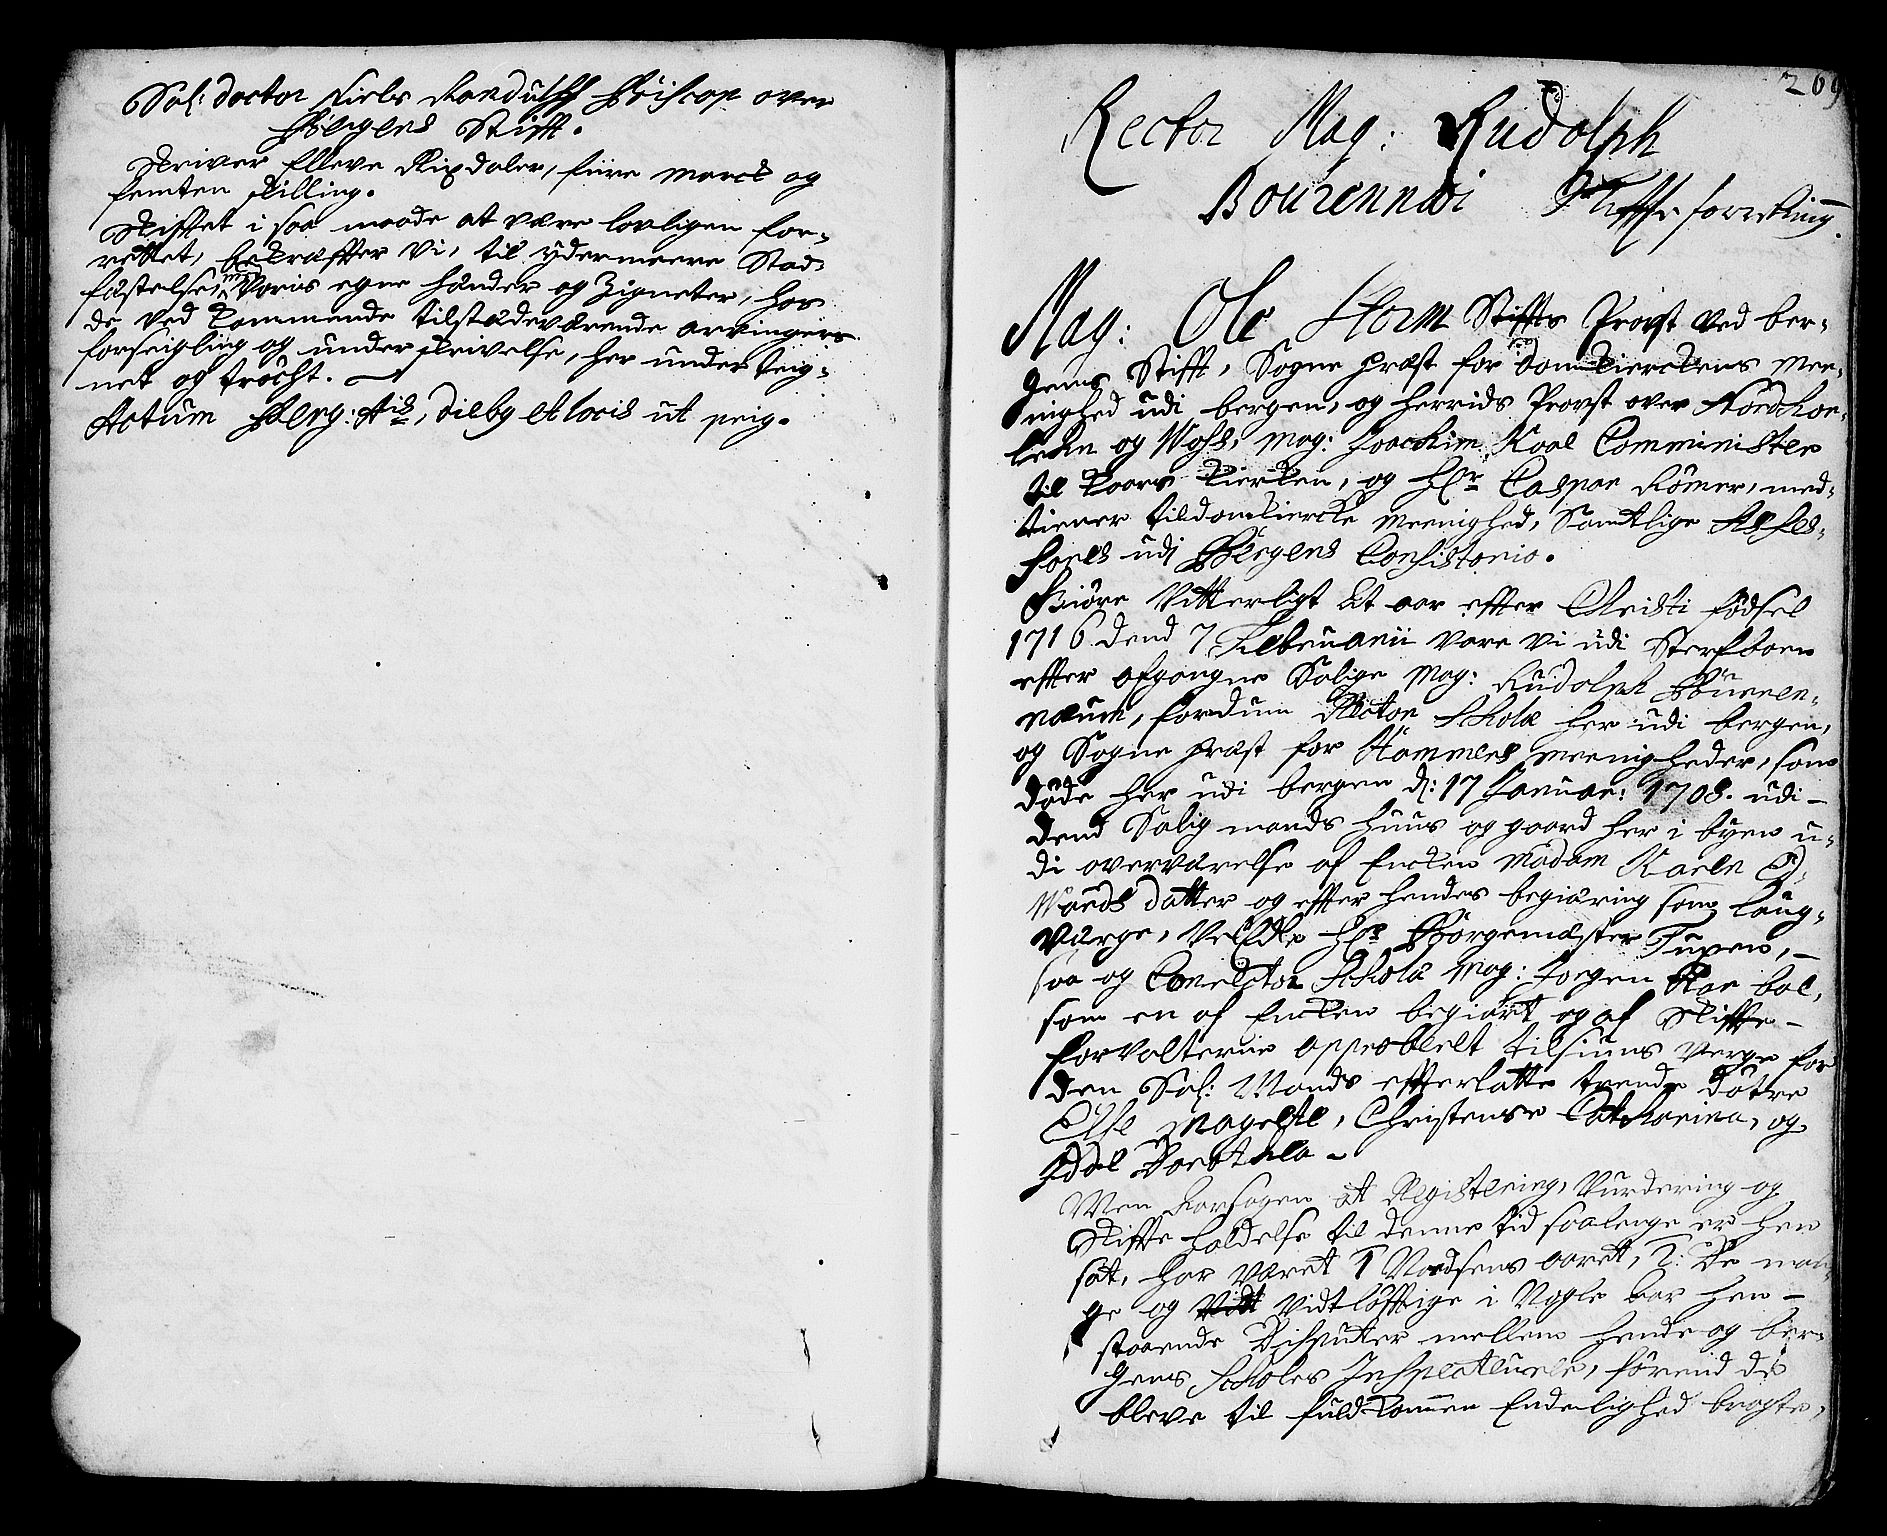 Sal: doctor Niels Randulff Bischop over
Bergens Stifft.
Skriver Elleve Rixdaler, fiire march og
femten skilling.
Skifftet i saa maade at være lovligen for-
rettet, bekræffter vi, til ydermeere Stad-
fæstelse, med Voris egne hænder og Zigneter, hos
de ved kommende tilstædeværende arvingers
forseigling og under skrivelse, her under teig-
net og trøcht.
Actum Berg: die et locis ut
269
Rector Mag: Rudolph
Bourennæi Skiffte forretning.
Mag: Ole Storm Stiffts Provst ved ber-
gens Stifft, Sogne præst for domkierckens mee-
nighed udi bergen, og herrids Provst over Nordhor-
lehn og Woss, mag: Joachim Kaal Comminister
til kaars kiercken, og Hr Caspar Römer, med-
tiener til domkiercke meenighed, Samtlige Asses-
sores udi Bergens Consistorio.
Giøre Vitterligt at aar effter Christi fødsel
1716 dend 7 Februarii vare vi udi Sterfboen
effter afgangne Salige Mag: Rudolph Bouren-
næum, fordum Rector Scholæ her udi bergen,
og Sogne præst for Hammers meenigheder, som
døde her udi bergen d: 17 Januar: 1708. udi-
dend Salig mands huus og gaard her i byen u-
di overværelse af Encken Madam Karen Ed-
vards datter og effter hendes begiæring som laug-
værge, Velædle Hr Borgemæster Tuxen,
saa og Conrector Scholæ Mag: Jørgen
som en af Encken begiært og af Skiffte-
forvalterne approberet tilsiuns verge for
den Sal: Mands efterlatte trende døtre
Else Magrete, Christense Catharina, og
Edel Dorothea -
Men Aarsagen at Registering, Vurdering og
Skiffte holdelse til denne tid saalenge er hen
sat, har været 1 Naadsens aaret, 2: De man-
ge og Vidt vidtløfftige i Nogle aar hen-
staaende Disputter mellem hende og ber-
gens Scholes Inspecteurer, førend de
bleve til fuldkommen Endelighed bragte,